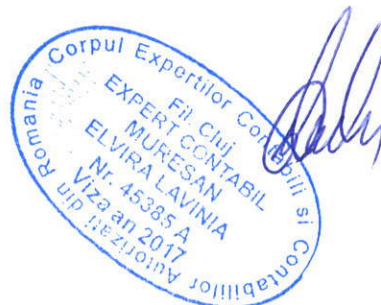 Corpul Expertilor Contabili si Contabililor Autorizati din Romania
Fil. Cluj
EXPERT CONTABIL
MURESAN
ELVIRA LAVINIA
Nr. 45385 A
Viza an 2017